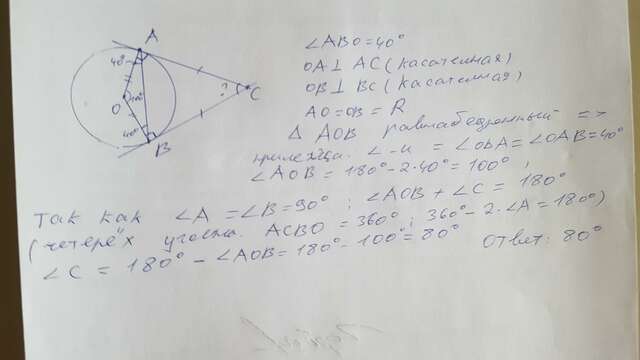 A
40°
O
100°
40°
B
?
C
∠ABO = 40°
OA ⊥ AC (касательная)
OB ⊥ BC (касательная)
AO = OB = R
Δ AOB равнобедренный =>
∠-и = ∠OBA = ∠OAB = 40°
∠AOB = 180° - 2·40° = 100° ;
Так как ∠A = ∠B = 90° ; ∠AOB + ∠C = 180°
(четерёх угольн. ACBO = 360° ; 360° - 2·∠A = 180°)
∠C = 180° - ∠AOB = 180° - 100° = 80° Ответ: 80°